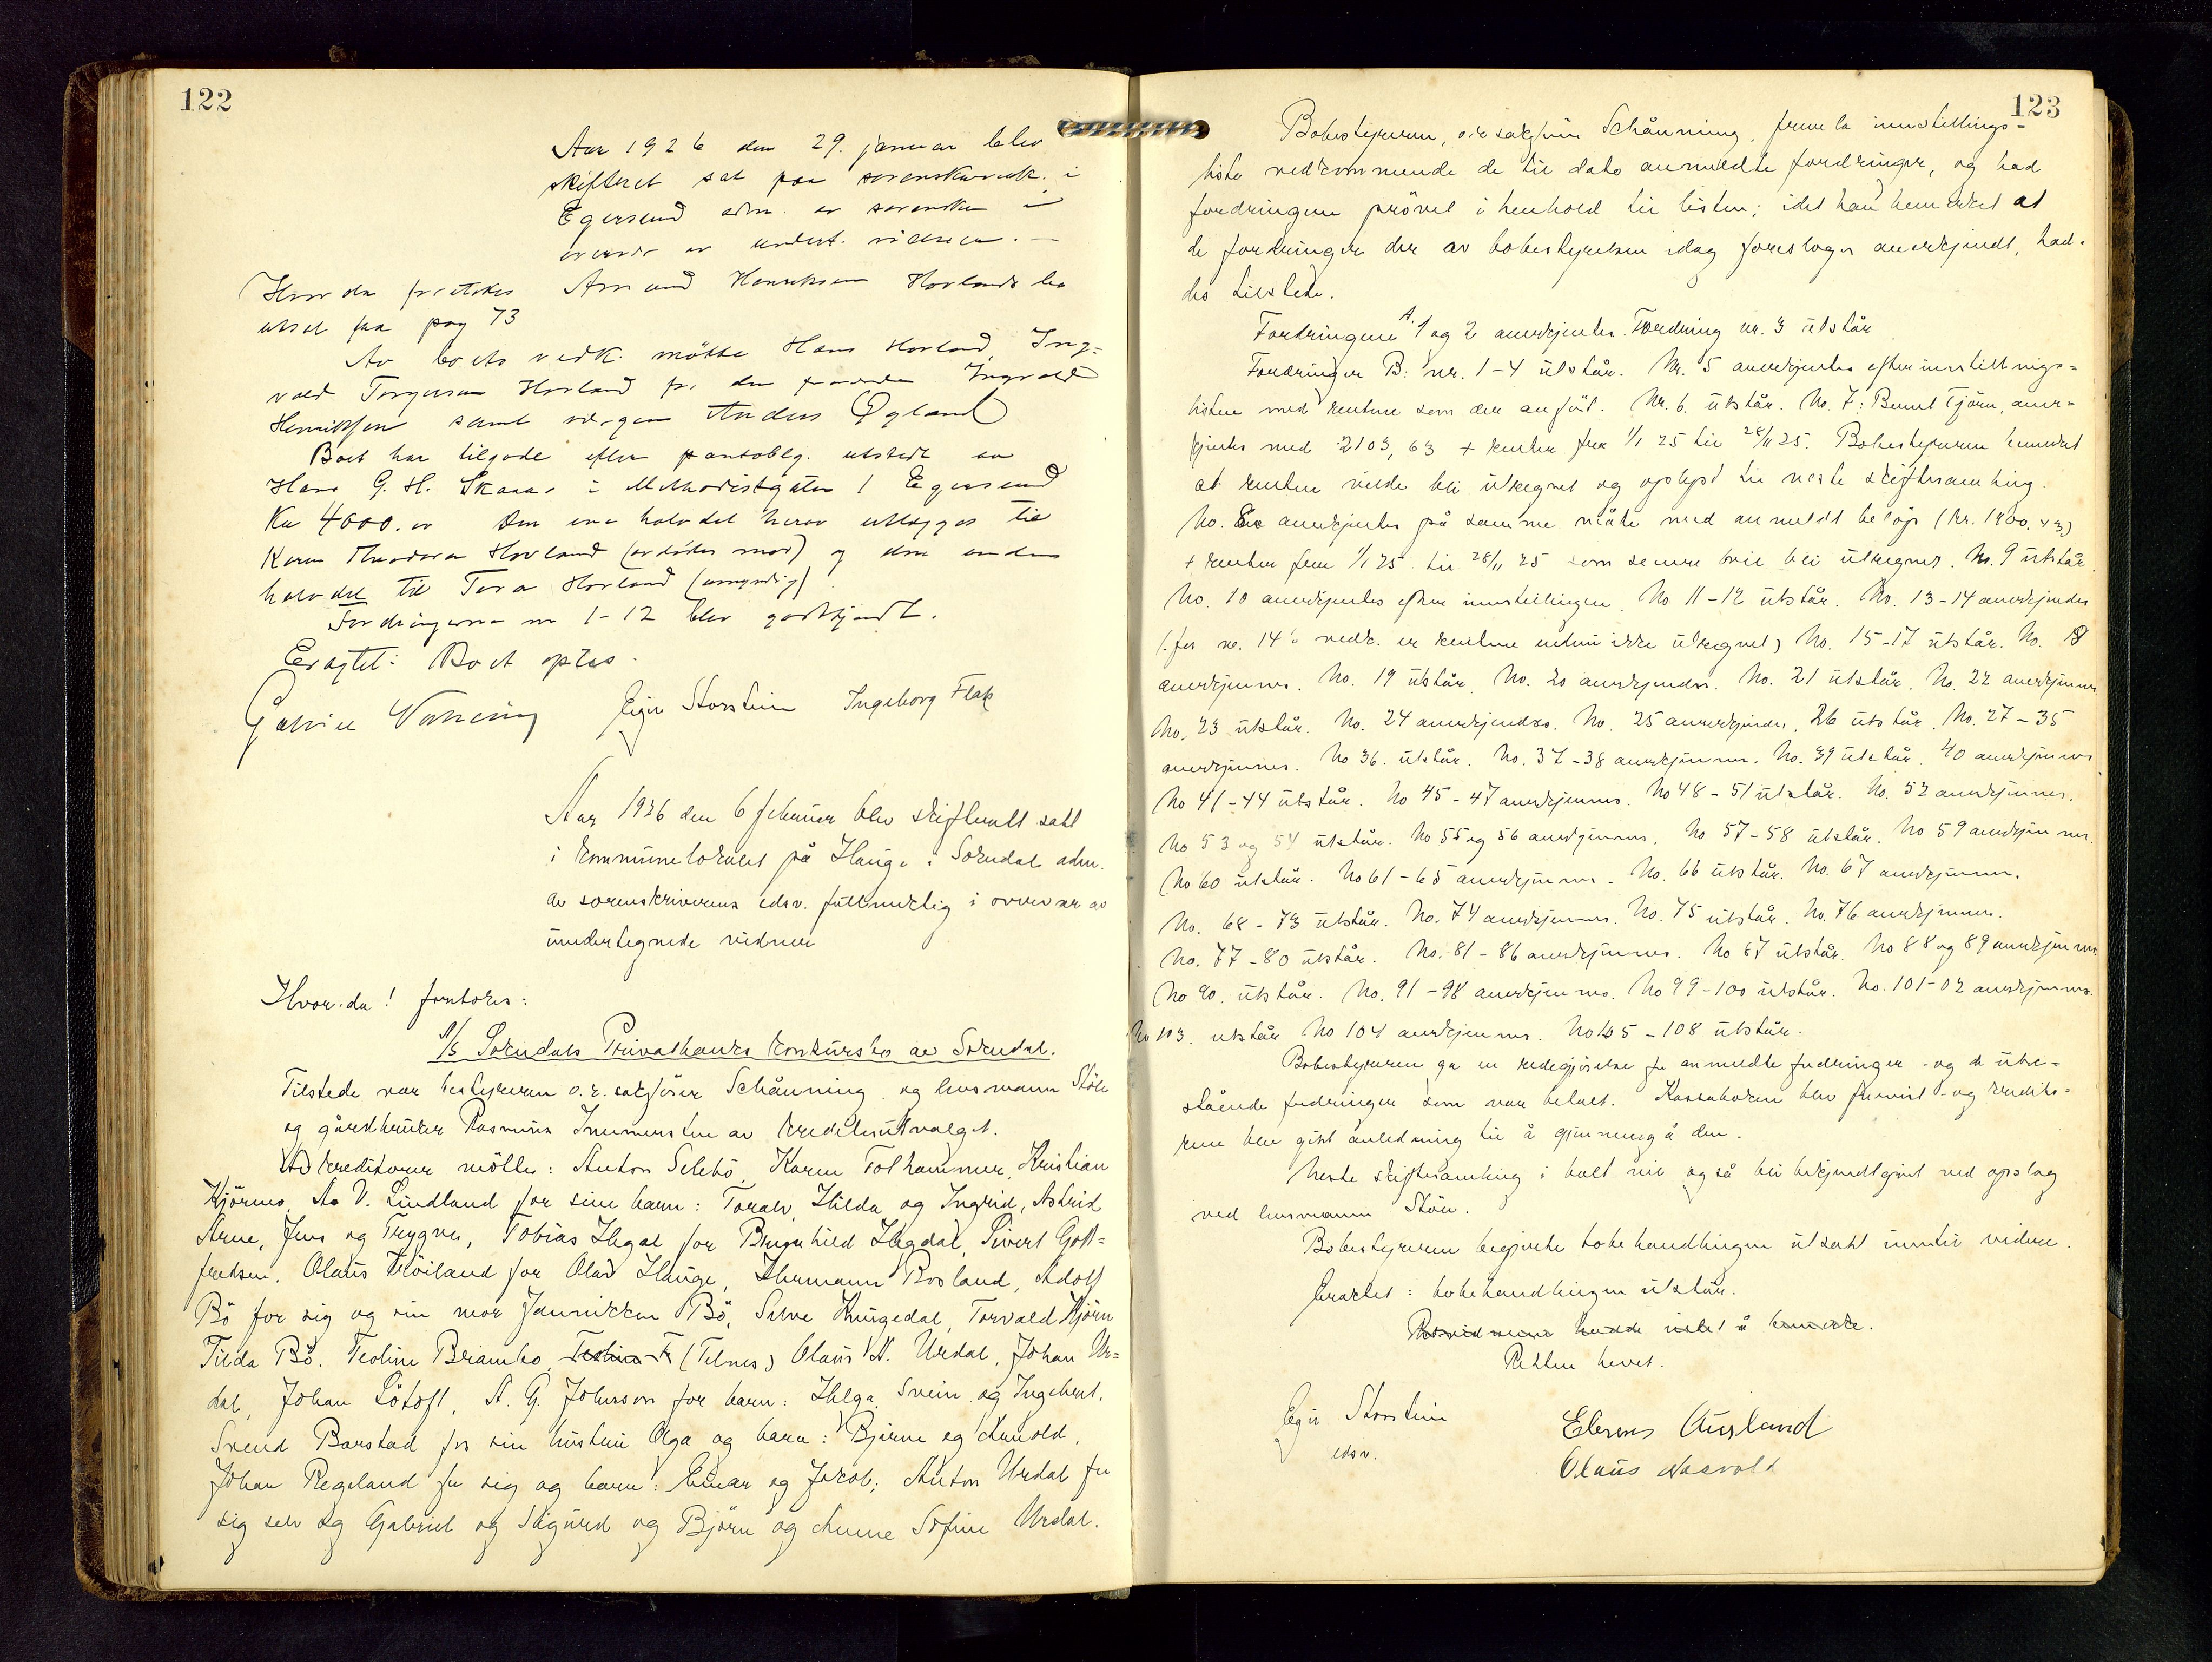 122
Aar 1926 den 29. januar blev
skifteret sat paa sorenskriverk. i
Egersund adm. av sorenskr. i
overvær av undert. vidner. —
Hvorda foretokes Amund Henriksen Hovlands bo
utsat fra pag 73
Av boets vedk. møtte Hans Hovland, Ing-
vald Torgersen Hovland for den Ingvald
Henriksen samt vergen Anders Øgland
Boet har tilgode efter pantoblg. utstedt av
Hans G. H. Skaar i Methodistgaten 1 Egersund
Kr 4000. Den ene halvdel herav utlægges til
Karen Theodora Hovland (avdødes mor) og den anden
halvdel til Tora Hovland (umyndig)
Fordringerne nr 1-12 blev godkjendt.
Eragtet: Boet optas.
Eigir Storstein Ingeborg Flak
Aar 1926 den 6 februar blev skifterett satt
i kommunelokalet på Hauge i Sokndal adm.
av sorenskriverens edsv. fullmektig i overvær av
undertegnede vidner
Hvor da! foretokes:
A/S Sokndals Privatbanks konkursbo av Sokndal.
Tilstede var bestyreren o.r. sakfører Schånning og lensmann Stöle
og gårdbruker Rasmus Immerstein av kreditorutvalget.
Av kreditorer møtte: Anton Selebö, Karen Tothammer, Kristian
Kjörnes, Aa V. Lindland for sine barn: Toralv, Hilda og Ingrid, Astrid
Arne, Jens og Trygve, Tobias Hegdal for Brynhild Hegdal, Sivert Gott-
fredsen, Olaus Fröiland for Olav Hauge, Hermann Rosland, Adolf
Bö for sig og sin mor Jannikken Bö, Selve Haugedal, Torvald Kjörn
Tilda Bö, Teoline Brambo, (Telnes) Olaus A. Urdal, Johan Ur-
dal, Johan Lötoft, A. G. Johnson for barn: Helga, Svein og Ingebret,
Svend Barstad for sin hustru Olga og barn: Bjarne og Arnold,
Johan Regeland for sig og barn: Einar og Jakob; Anton Urdal for
sig selv og Gabriel og Sigurd og Björn og Anne Sofine Urdal.
123
Bobestyreren, o.r. sakfører Schånning, fremla innstillings-
liste vedkommende de til dato anmeldte fordringer, og bad
fordringene prövet i henhold til listen; idet han bemerket at
de fordringer der av bobestyrelsen idag foreslages anerkjendt, had-
des tilstede.
Fordringene A. 1 og 2 anerkjentes. Fordring nr. 3 utstår
Fordringer B: nr. 1-4 utstår. Nr. 5 anerkjentes efter innstillings-
listen med rentene som der anført. Nr. 6. utstår. No. 7: Bernt Tjörn, aner-
kjentes med 2103,63 + renter fra 1/1 25 til 28/11 25. Bobestyreren bemerket
at rentene vilde bli utregnet og oplyst til neste skiftesamling.
No. 8 anerkjentes på samme måte med anmeldt beløp (kr. 1900,43)
+ renter fra 1/1 25 til 28/11 25 som senere vil bli utregnet. No. 9 utstår.
No. 10 anerkjentes efter innstillingen. No 11-12 utstår. No. 13-14 anerkjendes
(for no. 14's vedk. er rentene ennu ikke utregnet) No. 15-17 utstår. No. 18
anerkjennes. No. 19 utstår. No. 20 anerkjendes. No. 21 utstår. No. 22 anerkjennes
No. 23 utstår. No. 24 anerkjendes. No. 25 anerkjendes. 26 utstår. No. 27-35
anerkjennes. No 36. utstår. No. 37-38 anerkjennes. No. 39 utstår. 40 anerkjennes
No 41-44 utstår. No 45-47 anerkjennes. No 48-51 utstår. No. 52 anerkjennes.
No 53 og 54 utstår. No 55 og 56 anerkjennes. No 57-58 utstår. No 59 anerkjennes.
No 60 utstår. No 61-65 anerkjennes. No. 66 utstår. No. 67 anerkjennes.
No. 68-73 utstår. No. 74 anerkjennes. No. 75 utstår. No. 76 anerkjennes.
No. 77-80 utstår. No. 81-86 anerkjennes. No 87 utstår. No 88 og 89 anerkjennes
No 90. utstår. No. 91-98 anerkjennes. No 99-100 utstår. No. 101-02 anerkjennes.
No 103. utstår No 104 anerkjennes. No 105-108 utstår.
Bobestyreren ga en redegjørelse for anmeldte fordringer - og de ute-
stående fordringer som var betalt. Kassaboken blev fremvist - og kredito-
rene blev gitt anledning til å gjennemgå den.
Neste skiftesamling i boet vil også bli bekjendtgjort ved opslag
ved lensmann Stöle.
Bobestyreren begjærte bobehandlingen utsatt inntil videre.
Eraktet: bobehandlingen utstår.
Rettsvidnene hadde intet å bemerke.
Retten hevet.
Eigir Storstein
edsv.
Elenus Ousland
Olaus Naavold